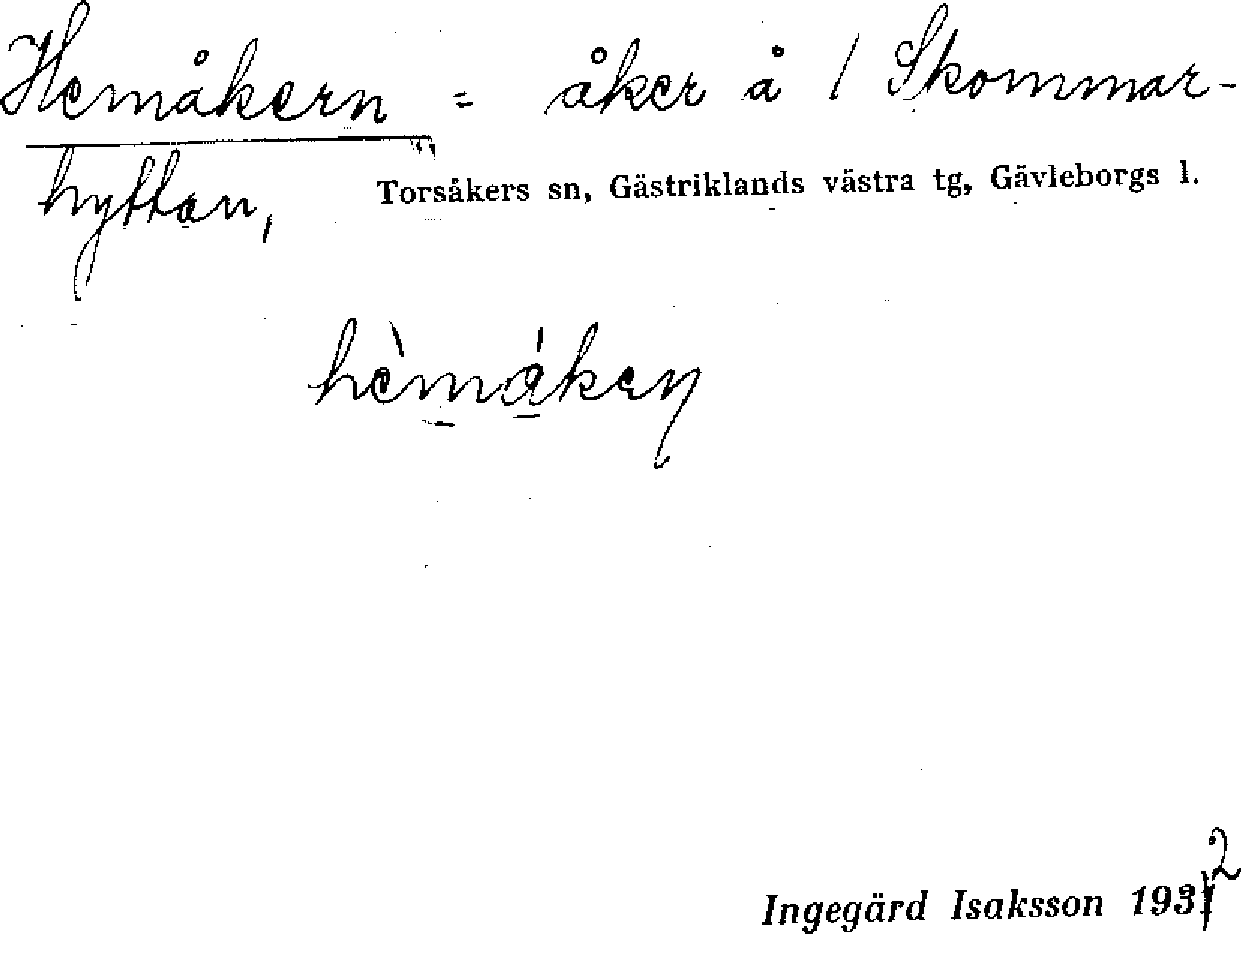 Hemåkern = åker å / Skommar-
hyttan, Torsåkers sn, Gästriklands västra tg, Gävleborgs l.
hèmákeη
Ingegärd Isaksson 1932